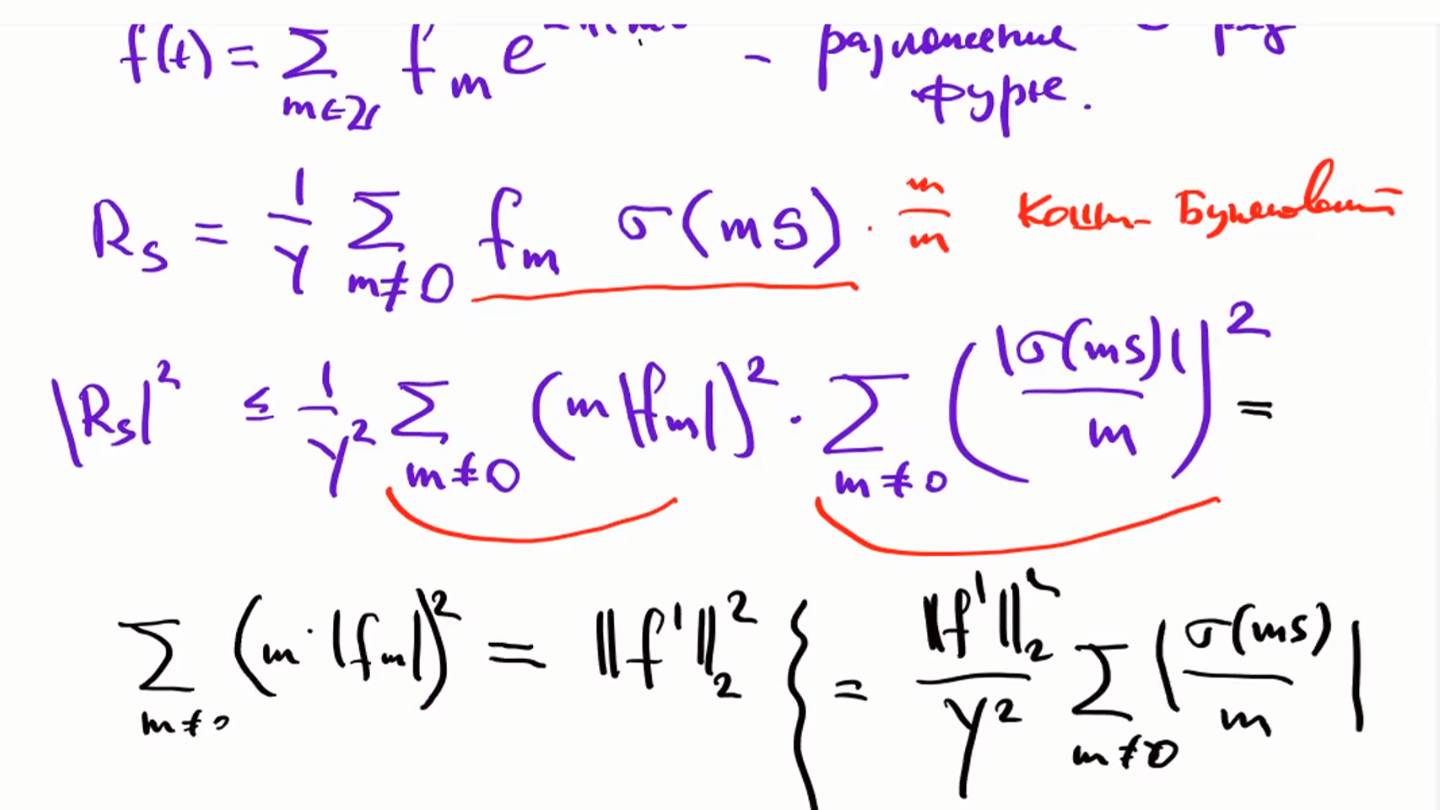 f(t) = ∑_{m∈ℤ} f_m e – разложение в ряд
Фурье.
R_s = 1/Y ∑_{m≠0} f_m σ(ms) · m/m Коши-Буняковский
|R_s|² ≤ 1/Y² ∑_{m≠0} (m|f_m|)² · ∑_{m≠0} (|σ(ms)|/m)² =
∑_{m≠0} (m·|f_m|)² = ||f'||₂² { = ||f'||₂²/Y² ∑_{m≠0} |σ(ms)/m|